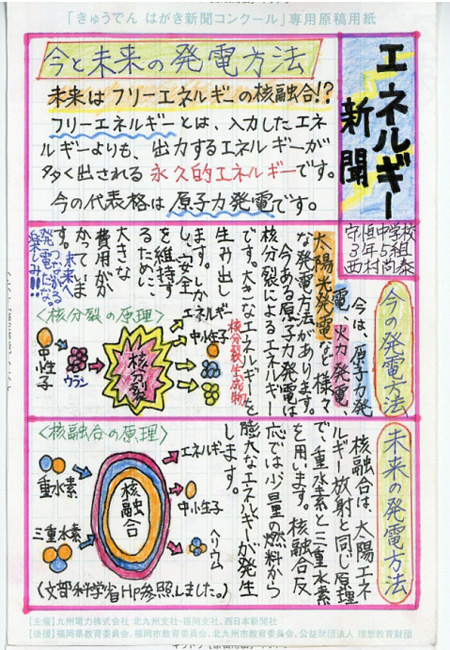 「きゅうでん はがき新聞コンクール」専用原稿用紙
エネルギー
新聞
守恒中学校
3年5組
西村尚泰
今と未来の発電方法
未来はフリーエネルギーの核融合!?
フリーエネルギーとは、入力したエネ
ルギーよりも、出力するエネルギーが
多く出される永久的エネルギーです。
今の代表格は原子力発電です。
今の発電方法
今は、原子力発
電、火力発電、
太陽光発電など様々
な発電方法があります。
今ある原子力発電は
核分裂によるエネルギー
です。大きなエネルギーを
生み出し
ます。しかし、安全
を維持す
るために、
大きな
費用がか
かっていま
す。
未来へつながる
発電だな。
楽しみ!!!
〈核分裂の原理〉
中性子
ウラン
核分裂
エネルギー
中小性子
核分裂生成物
未来の発電方法
核融合は、太陽エネ
ルギー放射と同じ原理
で、重水素と三重水素
を用います。核融合反
応では少量の燃料から
膨大なエネルギーが発生
します。
〈核融合の原理〉
重水素
三重水素
核融合
エネルギー
中小性子
ヘリウム
(文部科学省HP参照しました。)
【主催】九州電力株式会社 北九州支社・福岡支社、西日本新聞社
【後援】福岡県教育委員会、福岡市教育委員会、北九州市教育委員会、公益財団法人 理想教育財団